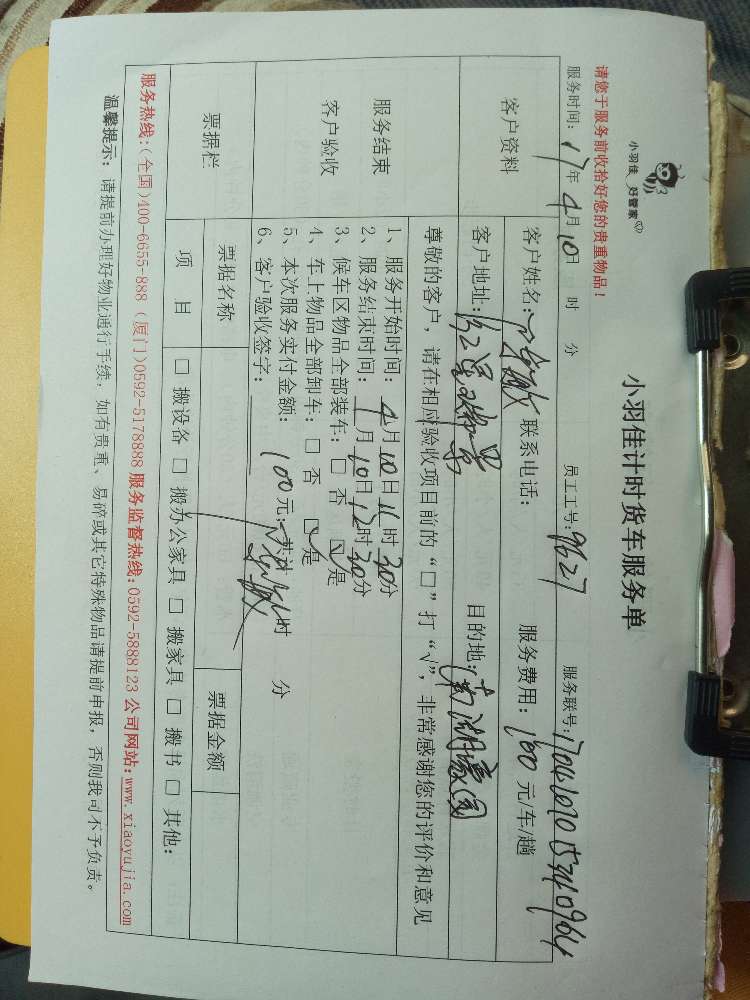 小羽佳 好管家
小羽佳计时货车服务单
请您于服务前收拾好您的贵重物品！
服务时间：17年4月10日 时 分 员工工号：9627 服务联号：
客户资料
客户姓名： 联系电话： 服务费用：100元/车/趟
客户地址： 目的地：南湖豪园
尊敬的客户，请在相应验收项目前的“□”打“√”，非常感谢您的评价和意见
服务结束
客户验收
1、服务开始时间：4月10日11时30分
2、服务结束时间：4月10日12时30分
3、候车区物品全部装车：□ 否 ☑ 是
4、车上物品全部卸车：□ 否 ☑ 是
5、本次服务实付金额：100元； 时 分
6、客户验收签字：
票据栏
票据名称 票据金额
项 目 □ 搬设备 □ 搬办公家具 □ 搬家具 □ 搬书 □ 其他：
服务热线：(全国)400-6655-888 (厦门)0592-5178888 服务监督热线：0592-5888123 公司网站：www.xiaoyujia.com
温馨提示：请提前办理好物业通行手续，如有贵重、易碎或其它特殊物品请提前申报，否则我司不予负责。